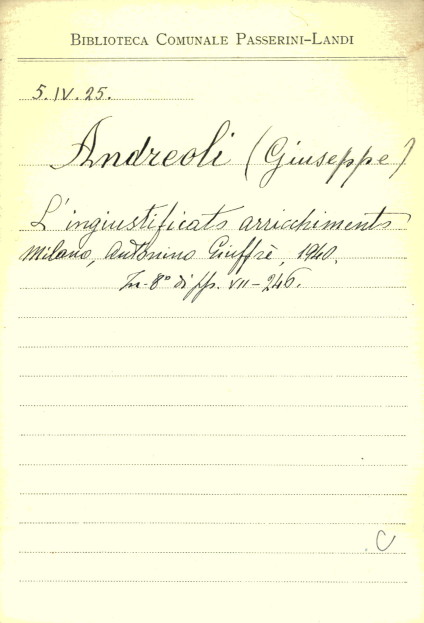 BIBLIOTECA COMUNALE PASSERINI-LANDI
5. IV. 25.
Andreoli (Giuseppe)
L'ingiustificato arricchimento
Milano, Antonino Giuffrè, 1940.
In-8° di pp. VII-246.
C